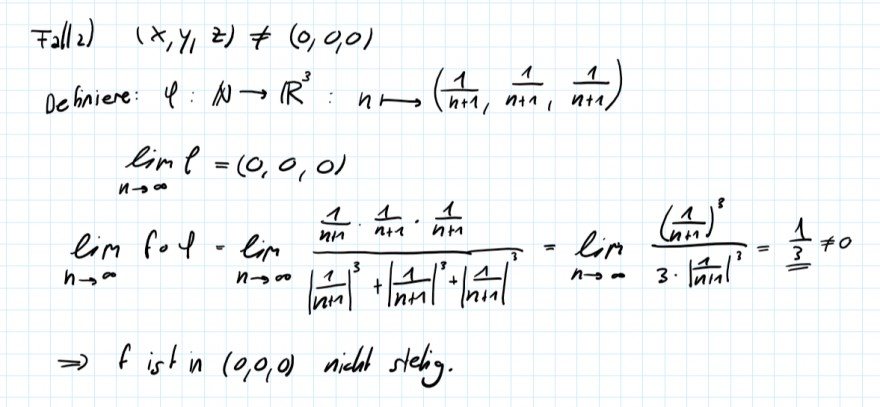 Fall 2) (x, y, z) ≠ (0, 0, 0)
Definiere: φ : ℕ → ℝ³ : n ↦ (1/(n+1), 1/(n+1), 1/(n+1))
lim_{n→∞} φ = (0, 0, 0)
lim_{n→∞} f∘φ = lim_{n→∞} (1/(n+1) · 1/(n+1) · 1/(n+1)) / (|1/(n+1)|³ + |1/(n+1)|³ + |1/(n+1)|³) = lim_{n→∞} (1/(n+1))³ / (3 · |1/(n+1)|³) = 1/3 ≠ 0
⇒ f ist in (0,0,0) nicht stetig.